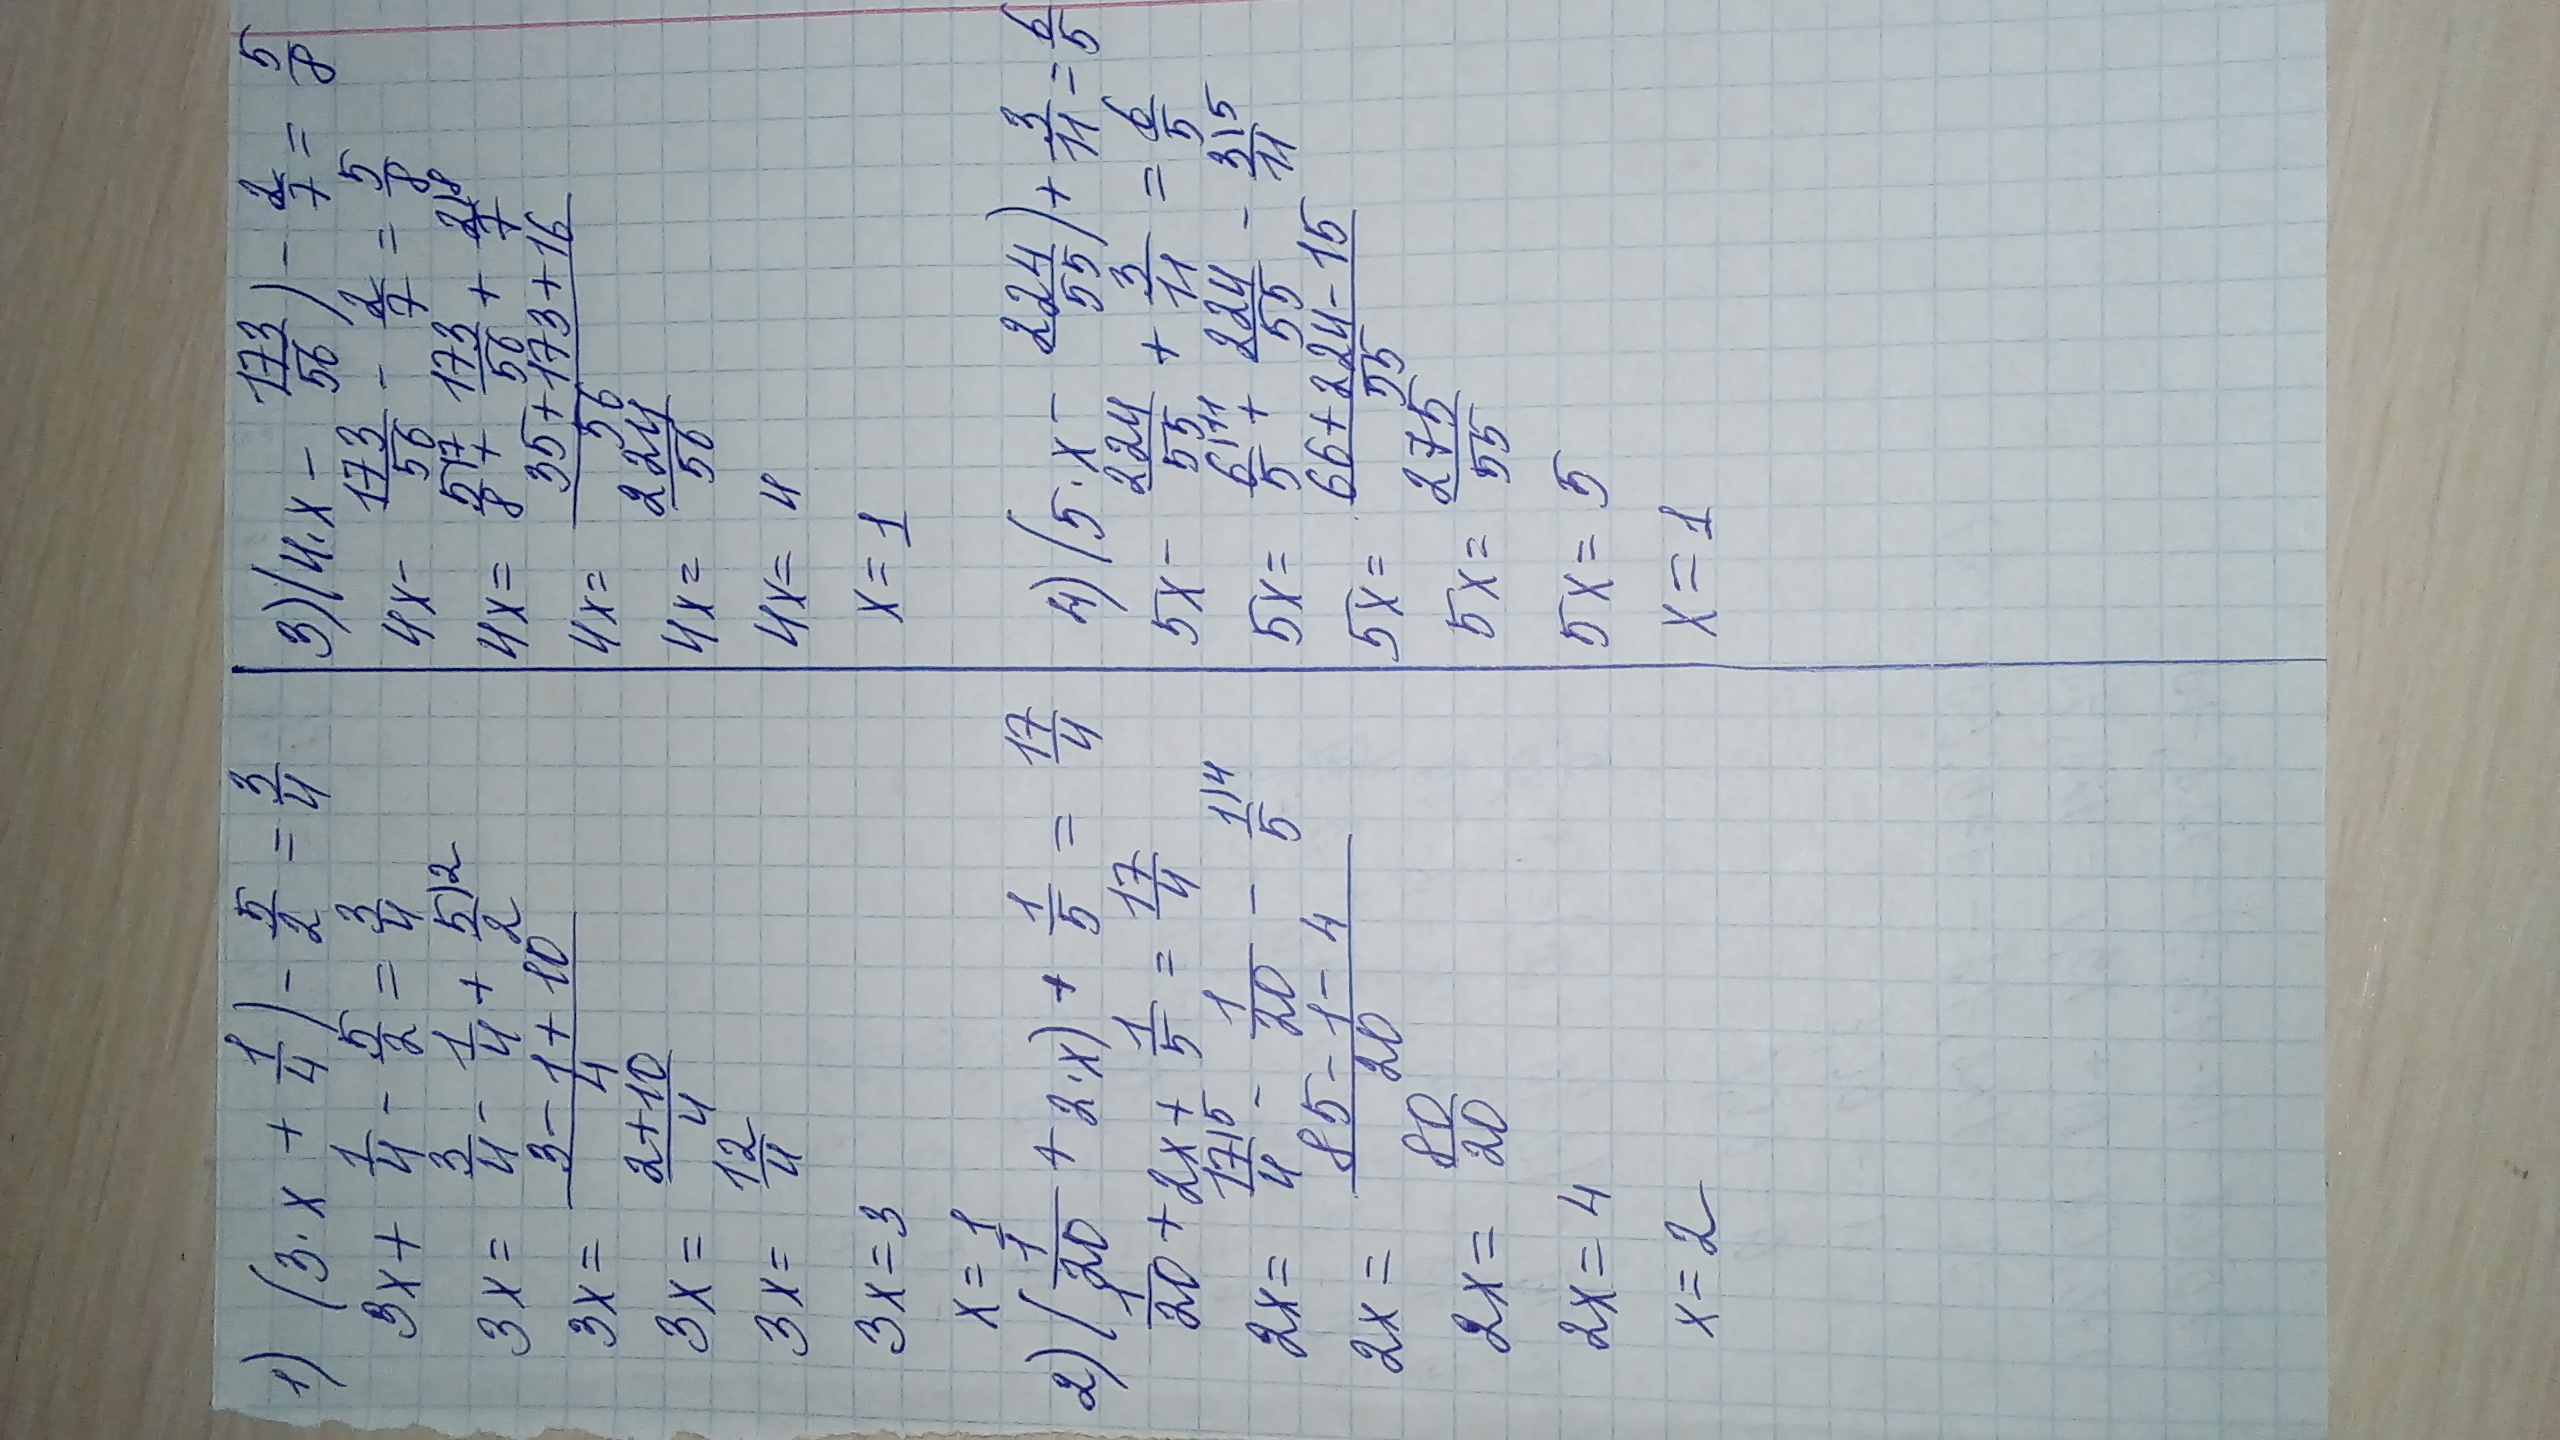 1) (3·x + 1/4) - 5/2 = 3/4
3x + 1/4 - 5/2 = 3/4
3x = 3/4 - 1/4 + 5|2/2
3x = 3-1+10/4
3x = 2+10/4
3x = 12/4
3x = 3
x = 1
2) (1/20 + 2·x) + 1/5 = 17/4
1/20 + 2x + 1/5 = 17/4
2x = 17|5/4 - 1/20 - 1|4/5
2x = 85-1-4/20
2x = 80/20
2x = 4
x = 2
3) (4·x - 173/56) - 2/7 = 5/8
4x - 173/56 - 2/7 = 5/8
4x = 5|7/8 + 173/56 + 2|8/7
4x = 35+173+16/56
4x = 224/56
4x = 4
x = 1
4) (5·x - 224/55) + 3/11 = 6/5
5x - 224/55 + 3/11 = 6/5
5x = 6|11/5 + 224/55 - 3|5/11
5x = 66+224-15/55
5x = 275/55
5x = 5
x = 1